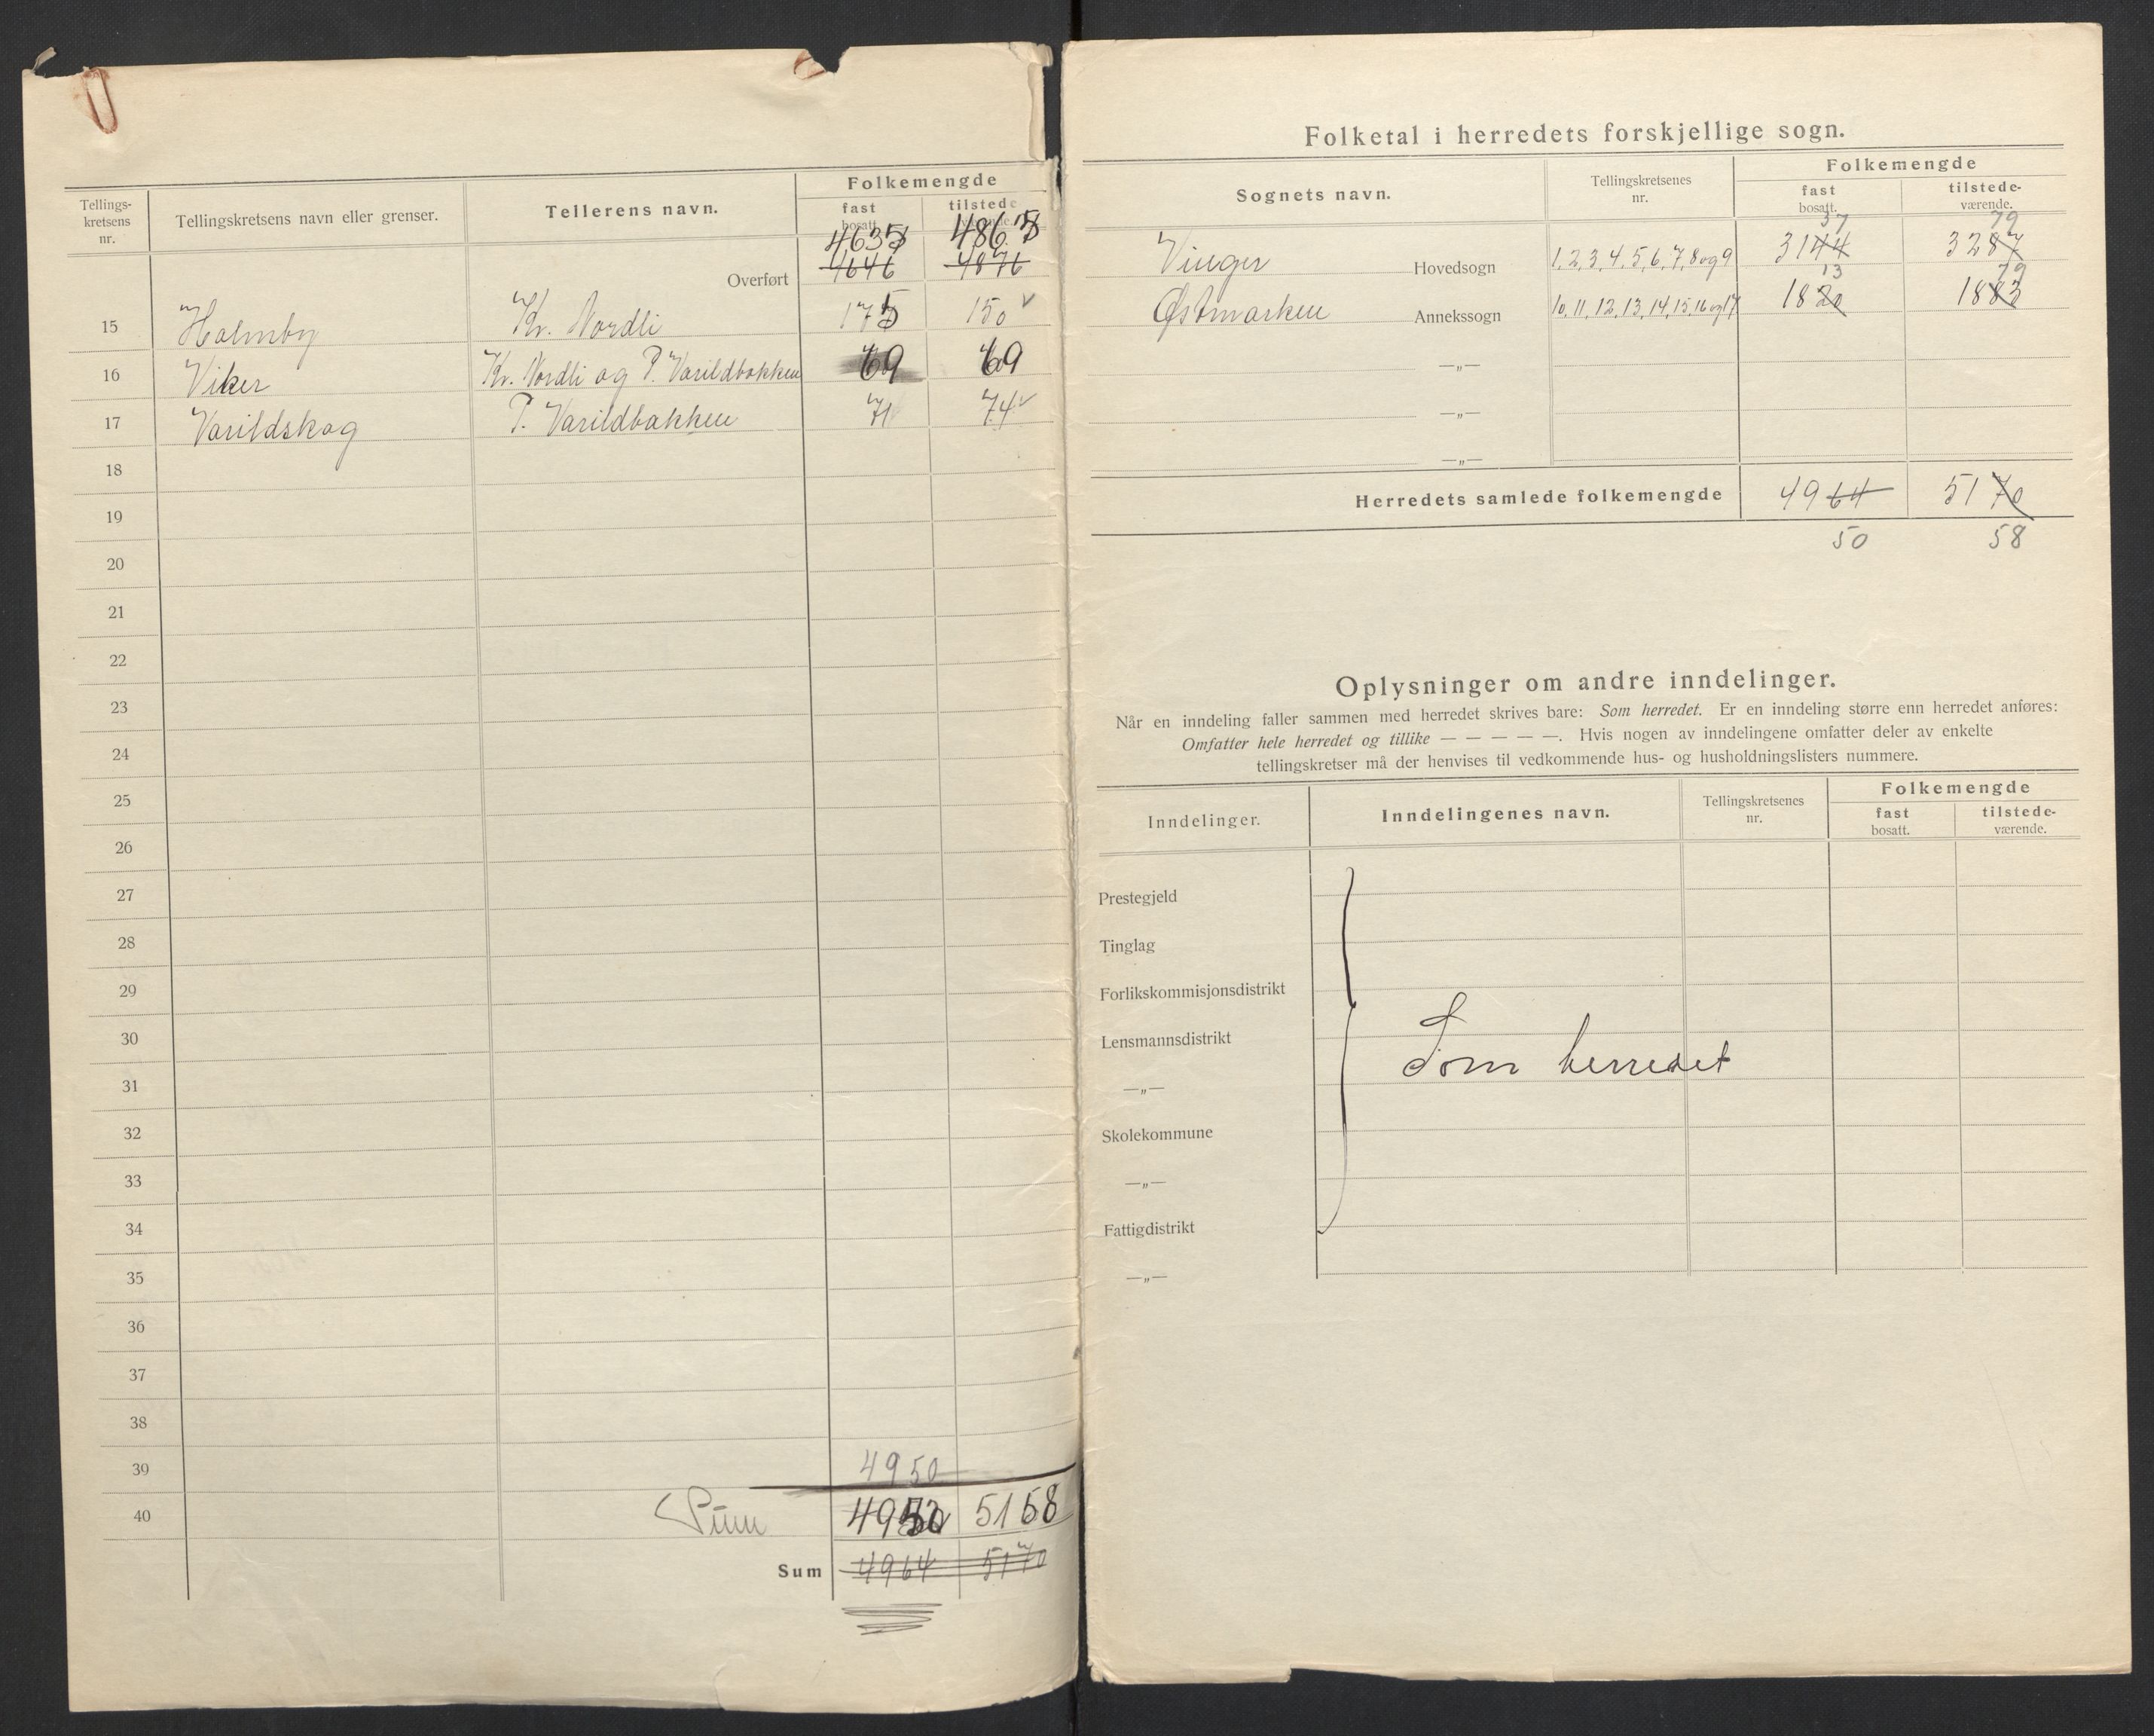 Tellings-
kretsens
nr.
Tellingskretsens navn eller grenser.
Tellerens navn.
Folkemengde
fast
bosatt.
tilstede-
værende.
4635
4865
Overført
4646
4876
15 Holmby Kr. Nordli 175 150
16 Viker Kr. Nordli og P. Varildbakken 69 69
17 Varildskog P. Varildbakken 71 74
18
19
20
21
22
23
24
25
26
27
28
29
30
31
32
33
34
35
36
37
38
39 4950
40 Sum 4950 5158
Sum 4964 5170
Folketal i herredets forskjellige sogn.
Sognets navn.
Tellingskretsenes
nr.
Folkemengde
fast
bosatt.
tilstede-
værende.
37 79
Vinger Hovedsogn 1, 2, 3, 4, 5, 6, 7, 8 og 9 3144 3287
13 79
Østmarken Annekssogn 10, 11, 12, 13, 14, 15, 16 og 17 1820 1883
—„—
—„—
—„—
Herredets samlede folkemengde 4964 5170
50 58
Oplysninger om andre inndelinger.
Når en inndeling faller sammen med herredet skrives bare: Som herredet. Er en inndeling større enn herredet anføres:
Omfatter hele herredet og tillike — — — — —. Hvis nogen av inndelingene omfatter deler av enkelte
tellingskretser må der henvises til vedkommende hus- og husholdningslisters nummere.
Inndelinger.
Inndelingenes navn.
Tellingskretsenes
nr.
Folkemengde
fast
bosatt.
tilstede-
værende.
Prestegjeld
Tinglag
Forlikskommisjonsdistrikt
Lensmannsdistrikt
Som herredet
—„—
Skolekommune
—„—
Fattigdistrikt
—„—